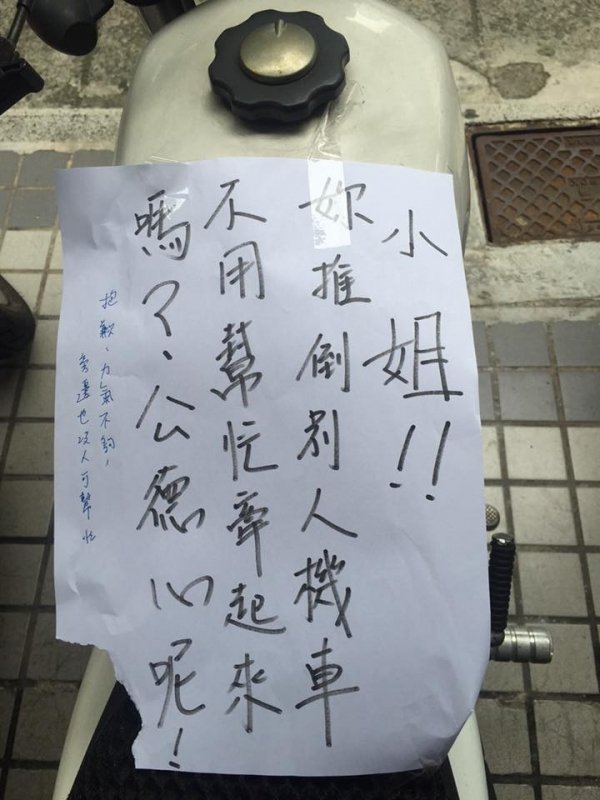 小姐!!
妳推倒別人機車
不用幫忙牽起來
嗎?.公德心呢!
抱歉、力氣不夠,
旁邊也沒人可幫忙